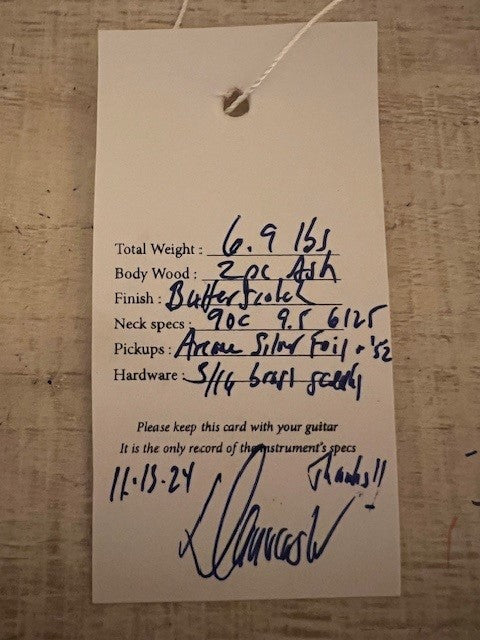 Total Weight : 6.9 lbs
Body Wood : 2pc Ash
Finish : Butterscotch
Neck specs : .90C 9.5 6125
Pickups : Arcane Silver Foil + '52
Hardware : 5/16 brass
Please keep this card with your guitar
It is the only record of the instrument's specs
11-13-24 Thanks!!